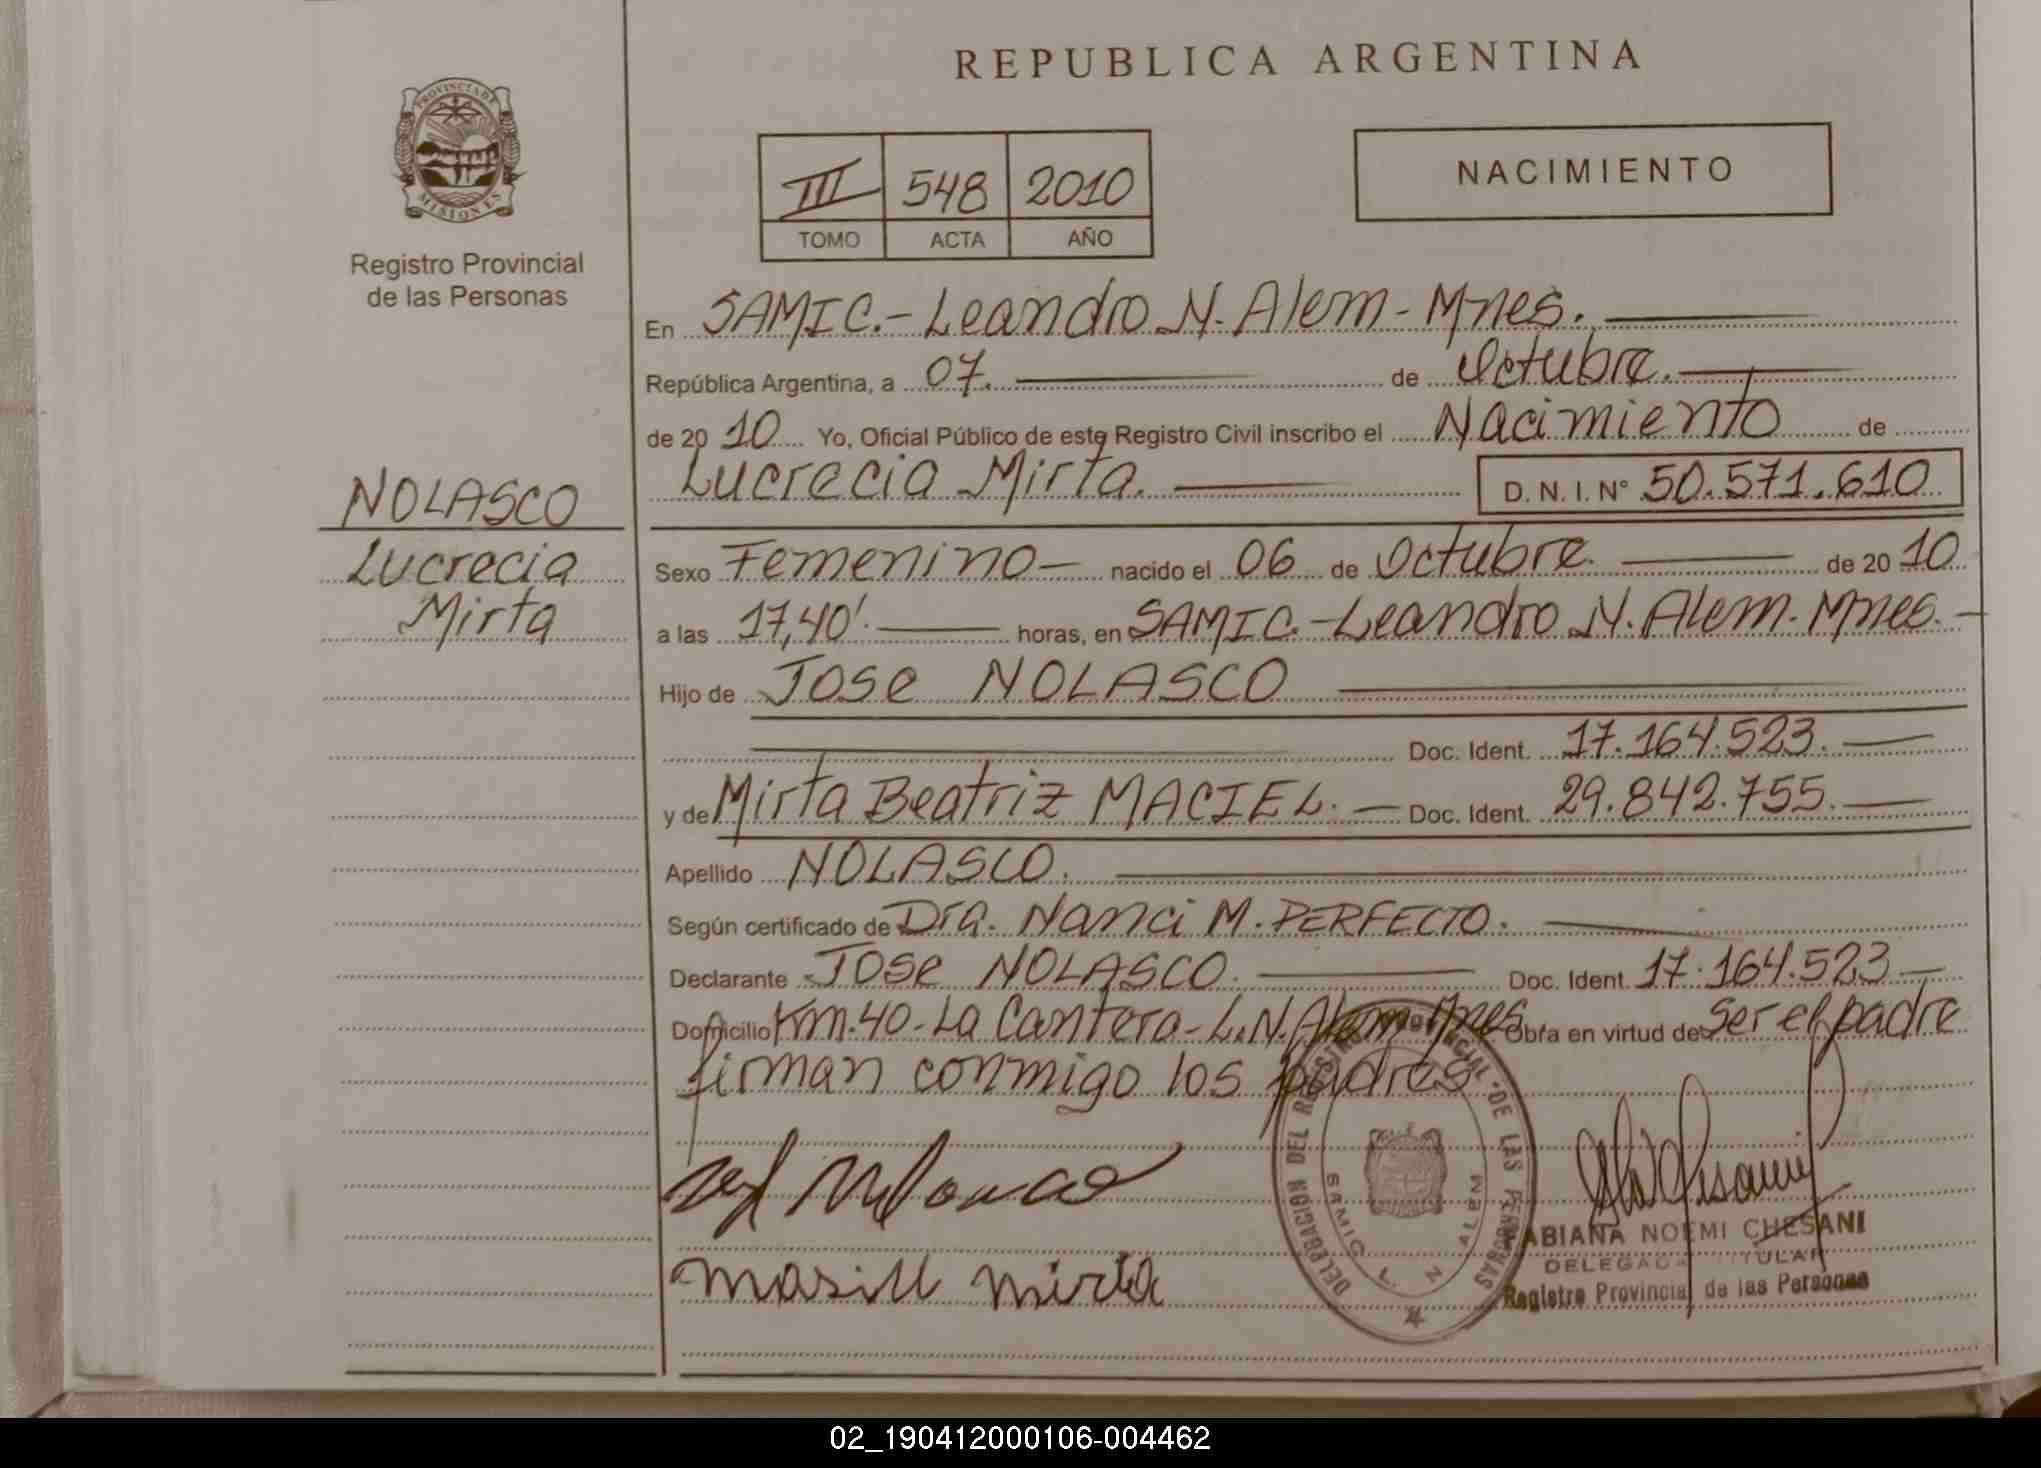 REPUBLICA ARGENTINA
PROVINCIA DE MISIONES
Registro Provincial
de las Personas
III 548 2010
TOMO ACTA AÑO
NACIMIENTO
En SAMIC.- Leandro N. Alem - Mnes.
República Argentina, a 07. de Octubre.
de 20 10 Yo, Oficial Público de este Registro Civil inscribo el Nacimiento de
Lucrecia Mirta. D. N. I. Nº 50.571.610
NOLASCO
Lucrecia
Mirta
Sexo Femenino nacido el 06 de Octubre. de 20 10
a las 17,40'. horas, en SAMIC.-Leandro N. Alem. Mnes.
Hijo de Jose NOLASCO
Doc. Ident. 17.164.523.
y de Mirta Beatriz MACIEL. Doc. Ident. 29.842.755.
Apellido NOLASCO.
Según certificado de Dra. Nanci M. PERFECTO.
Declarante Jose NOLASCO. Doc. Ident. 17.164.523
Domicilio Km. 40 - La Cantera - L.N. Alem Mnes Obra en virtud de ser el padre
firman conmigo los padres
DELEGACION DEL REGISTRO PROVINCIAL DE LAS PERSONAS
SAMIC L. N. ALEM
Mirta
ABIANA NOEMI CHESANI
DELEGADA TITULAR
Registro Provincial de las Personas
02_190412000106-004462